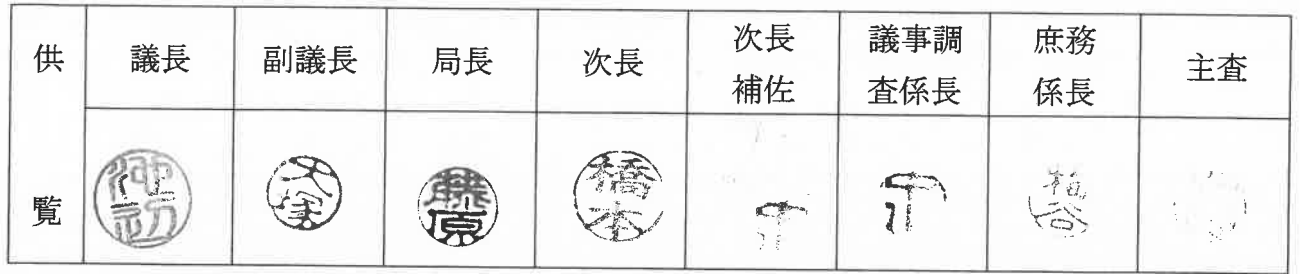 供覧
議長
副議長
局長
次長
次長
補佐
議事調
査係長
庶務
係長
主査
藤原
橋本
梅谷